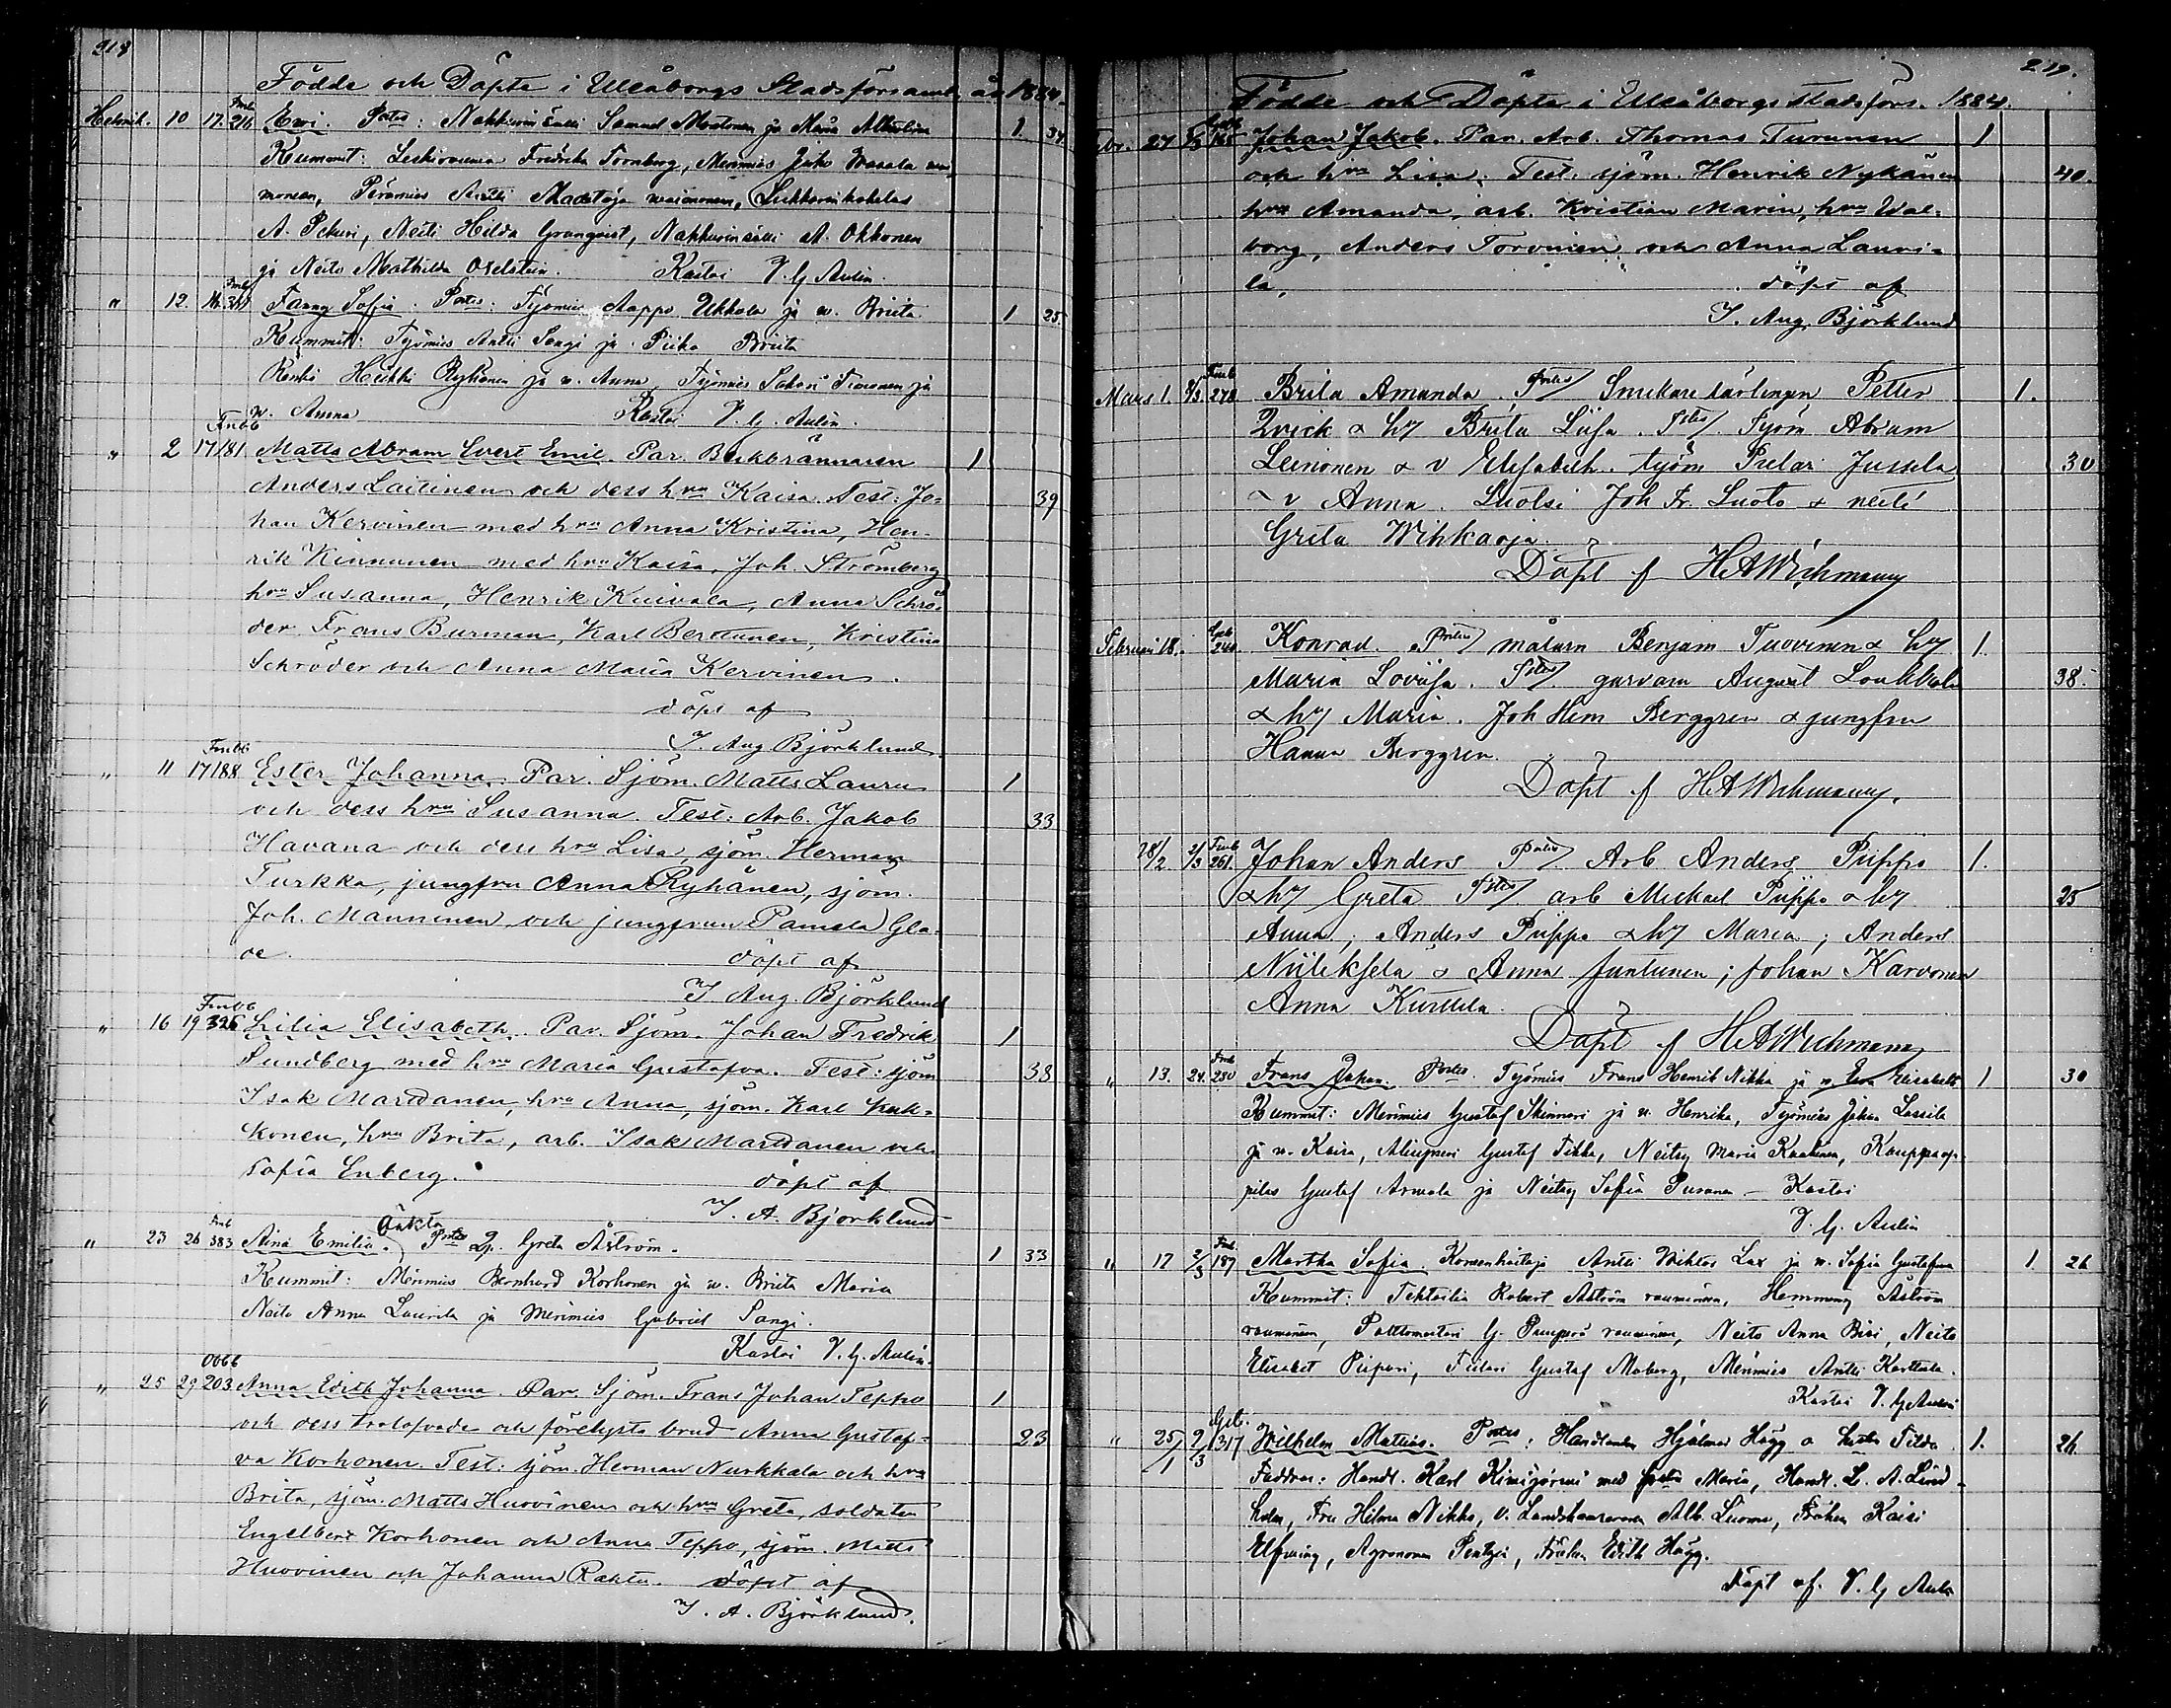 218
Födde och Döpte i Uleåborgs Stadsförsaml. år 1884.
Helmik. 10 17. Fmb 216 Ewi Portes: Nahkurinsälli Samuel Mortonen ja Maria 1. 34.
Kummit: Leskirouva Fredrika Tornberg, Merimies Juho
monsen, Perämies Antti Madetoja waimonsen,
A. Pekuri, Neiti Hilda Granqvist, Nahkurinsälli A. Okkonen
ja Neito Mathilda Kastoi V. G. Aulin.
" 12. Fmb Fanny Sofia. Portes: Työmies Aappo Ukkola ja w. Briita 1 25.
Kummit: Työmies Antti Sangi ja Piika Briita
Renki Heikki Ryhänen ja w. Anna, Työmies Sakari ja
w. Anna Kastoi V. G. Aulin.
" 2 17 Fmbb 181 Matts Abram Evert Emil. Par. Beckbrännaren 1
Anders Laitinen och dess hru Kaisa. Test: Jo- 39
han Kervinen med hru Anna Kristina, Hen-
rik Kinnunen med hru Kaisa, Joh. Strömberg
hru Susanna, Henrik Kuivala, Anna Schrö-
der, Frans Burman, Karl Berttunen, Kristina
Schröder och Anna Maria Kervinen.
döpt af
J. Aug Björklund
" 11 17 Fmbb 188 Ester Johanna. Par. Sjöm. Matts Lauru 1
och dess hru Susanna. Test: Arb. Jakob 33
Havana och dess hru Lisa, sjöm. Herman
Turkka, jungfru Anna Ryhänen, sjöm.
Joh. Manninen och jungfrun Pamela Gla-
de. döpt af
J Aug. Björklund
" 16 19 Fmbb 326 Lilia Elisabeth. Par. Sjöm. Johan Fredrik 1
Sundberg med hru Maria Gustafva. Test: sjöm 38
Isak Marttanen, hru Anna, sjöm. Karl Kuk-
konen, hru Brita, arb. Isak Marttanen och
Sofia Enberg. döpt af
J. A. Björklund
" 23 26 Fmb 383 Aina Emilia. Oäkta Portes Greta Åström. 1 33
Kummit: Merimies Bernhard Korhonen ja w. Briita Maria
Neito Anna Laurila ja Merimies Gabriel Sangi.
Kastoi V. G. Aulin.
" 25 29 203 Anna Edith Johanna. Par. Sjöm. Frans Johan Teppo 1
och dess trolofvade och förelysta brud Anna Gustaf- 23
va Korhonen. Test: sjöm. Herman Nurkkala och hru
Brita, sjöm. Matts Huovinen och hru Greta, soldaten
Engelbert Korhonen och Anna Teppo, sjöm. Matts
Huovinen och Johanna Rahtu. döpt af
J. A. Björklund.
219.
Födde och Döpte i Uleåborgs stadsförs. 1884.
27 165 Johan Jakob. Par. Arb. Thomas Turunen 1
och hru Lisa. Test: sjöm. Henrik Nykänen 40.
hru Amanda, arb. Kristian Marin, hru Wal-
borg, Anders Torvinen och Anna Lauri-
la, döpt af
J. Aug. Björklund
Mars 1. 8/3 Fmb 278 Brita Amanda. Portes Snickare lärlingen Petter 1.
Qvick & h Brita Liisa. Tstes Työm Abram
Leinonen & v Elisabeth. työm Pietari Jussila 30
& v Anna. Luotsi Joh Fr. Luoto & neiti
Greta Wihkaoja.
Döpt af HAWichmann
Februari 18. 240 Konrad. Portes målarn Benjam Tuovinen & h 1.
Maria Lovisa. Tstes garvarn August Loukkola 38.
& h Maria. Joh Hem Berggren & jungfru
Hanna Berggren.
Döpt af HAWichmann.
28/2. 2/3 Fmb 261. Johan Anders Portes Arb Anders Piippo 1.
& h Greta Tstes arb Michael Piippo & h 25
Anna; Anders Piippo & h Maria; Anders
Niilekselä & Anna Juntunen; Johan Karvonen
Anna Kurttila.
Döpt af HAWichmann
" 13. 24. Fmb 280 Frans Johan. Portes. Työmies Frans Henrik Nikka ja w. Eeva Elisabeth 1 30
Kummit: Merimies Gustaf Skinnari ja w. Henrika, Työmies Juhan Lassila
ja w. Kaisa, Gustaf Tikka, Neitsy Maria, Kauppaop-
pilas Gustaf ja Neitsy Sofia Pusanen — Kastoi
V. G. Aulin
" 17 2/3 Fmb 187 Martha Sofia. Antti Wiktor Lax ja w. Sofia Gustafva 1. 26
Kummit: Robert Åström rouvineen, Hemming Åström
rouvineen, G. rouvineen, Neito Anna, Neito
Elisabet Piipari, Gustaf Moberg, Merimies Antti Karttula.
Kastoi V. G. Aulin
" 25/1 2/3 317 Wilhelm Mattias. Portes: Handlanden Hjalmar Hägg o Tilda 1. 26.
Faddrar: Handl. Karl med Maria, Handl. L. A. Lind-
holm, Fru Hilma Nikko, v. Landskamreraren Alb. Luoma, Fröken Kaisi
Elfving, Agronomen, Fröken Edith Hägg.
Döpt af. V. G Aulin